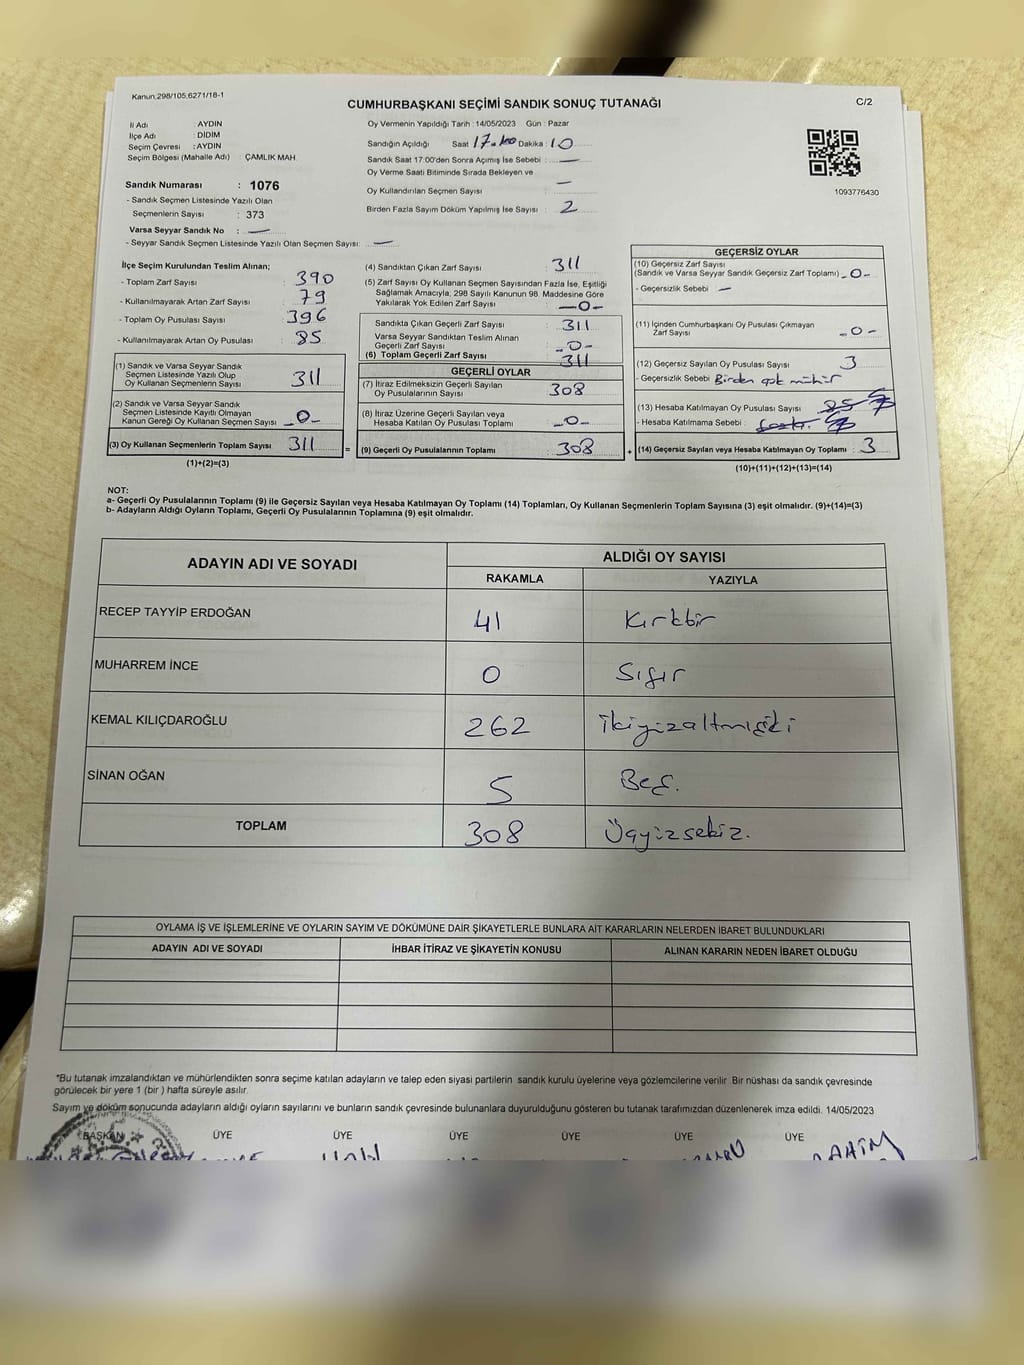 Kanun,298/105,6271/18-1
CUMHURBAŞKANI SEÇİMİ SANDIK SONUÇ TUTANAĞI
C/2
İl Adı : AYDIN
İlçe Adı : DİDİM
Seçim Çevresi : AYDIN
Seçim Bölgesi (Mahalle Adı) : ÇAMLIK MAH.
Sandık Numarası : 1076
- Sandık Seçmen Listesinde Yazılı Olan
Seçmenlerin Sayısı : 373
Varsa Seyyar Sandık No : —
- Seyyar Sandık Seçmen Listesinde Yazılı Olan Seçmen Sayısı: —
Oy Vermenin Yapıldığı Tarih : 14/05/2023 Gün : Pazar
Sandığın Açıldığı Saat 17 Dakika : 10
Sandık Saat 17:00'den Sonra Açımış İse Sebebi : —
Oy Verme Saati Bitiminde Sırada Bekleyen ve
Oy Kullandırılan Seçmen Sayısı —
Birden Fazla Sayım Döküm Yapılmış İse Sayısı : 2
1093776430
İlçe Seçim Kurulundan Teslim Alınan;
- Toplam Zarf Sayısı : 390
- Kullanılmayarak Artan Zarf Sayısı : 79
- Toplam Oy Pusulası Sayısı : 396
- Kullanılmayarak Artan Oy Pusulası : 85
(1) Sandık ve Varsa Seyyar Sandık
Seçmen Listesinde Yazılı Olup
Oy Kullanan Seçmenlerin Sayısı 311
(2) Sandık ve Varsa Seyyar Sandık
Seçmen Listesinde Kayıtlı Olmayan
Kanun Gereği Oy Kullanan Seçmen Sayısı -0-
(3) Oy Kullanan Seçmenlerin Toplam Sayısı 311 =
(1)+(2)=(3)
(4) Sandıktan Çıkan Zarf Sayısı : 311
(5) Zarf Sayısı Oy Kullanan Seçmen Sayısından Fazla İse, Eşitliği
Sağlamak Amacıyla, 298 Sayılı Kanunun 98. Maddesine Göre
Yakılarak Yok Edilen Zarf Sayısı : -0-
Sandıkta Çıkan Geçerli Zarf Sayısı : 311
Varsa Seyyar Sandıktan Teslim Alınan
Geçerli Zarf Sayısı : -0-
(6) Toplam Geçerli Zarf Sayısı : 311
GEÇERLİ OYLAR
(7) İtiraz Edilmeksizin Geçerli Sayılan
Oy Pusulalarının Sayısı : 308
(8) İtiraz Üzerine Geçerli Sayılan veya
Hesaba Katılan Oy Pusulası Toplamı : -0-
(9) Geçerli Oy Pusulalarının Toplamı : 308 +
GEÇERSİZ OYLAR
(10) Geçersiz Zarf Sayısı
(Sandık ve Varsa Seyyar Sandık Geçersiz Zarf Toplamı) -0-
- Geçersizlik Sebebi : —
(11) İçinden Cumhurbaşkanı Oy Pusulası Çıkmayan
Zarf Sayısı : -0-
(12) Geçersiz Sayılan Oy Pusulası Sayısı : 3
- Geçersizlik Sebebi : Birden çok mühür
(13) Hesaba Katılmayan Oy Pusulası Sayısı : 85
- Hesaba Katılmama Sebebi :
(14) Geçersiz Sayılan veya Hesaba Katılmayan Oy Toplamı : 3
(10)+(11)+(12)+(13)=(14)
NOT:
a- Geçerli Oy Pusulalarının Toplamı (9) ile Geçersiz Sayılan veya Hesaba Katılmayan Oy Toplamı (14) Toplamları, Oy Kullanan Seçmenlerin Toplam Sayısına (3) eşit olmalıdır. (9)+(14)=(3)
b- Adayların Aldığı Oyların Toplamı, Geçerli Oy Pusulalarının Toplamına (9) eşit olmalıdır.
ADAYIN ADI VE SOYADI
ALDIĞI OY SAYISI
RAKAMLA YAZIYLA
RECEP TAYYİP ERDOĞAN 41 Kırkbir
MUHARREM İNCE 0 Sıfır
KEMAL KILIÇDAROĞLU 262 İkiyüzaltmışiki
SİNAN OĞAN 5 Beş.
TOPLAM 308 Üçyüzsekiz.
OYLAMA İŞ VE İŞLEMLERİNE VE OYLARIN SAYIM VE DÖKÜMÜNE DAİR ŞİKAYETLERLE BUNLARA AİT KARARLARIN NELERDEN İBARET BULUNDUKLARI
ADAYIN ADI VE SOYADI İHBAR İTİRAZ VE ŞİKAYETİN KONUSU ALINAN KARARIN NEDEN İBARET OLDUĞU
*Bu tutanak imzalandıktan ve mühürlendikten sonra seçime katılan adayların ve talep eden siyasi partilerin sandık kurulu üyelerine veya gözlemcilerine verilir. Bir nüshası da sandık çevresinde
görülecek bir yere 1 (bir) hafta süreyle asılır.
Sayım ve döküm sonucunda adayların aldığı oyların sayılarını ve bunların sandık çevresinde bulunanlara duyurulduğunu gösteren bu tutanak tarafımızdan düzenlenerek imza edildi. 14/05/2023
BAŞKAN ÜYE ÜYE ÜYE ÜYE ÜYE ÜYE